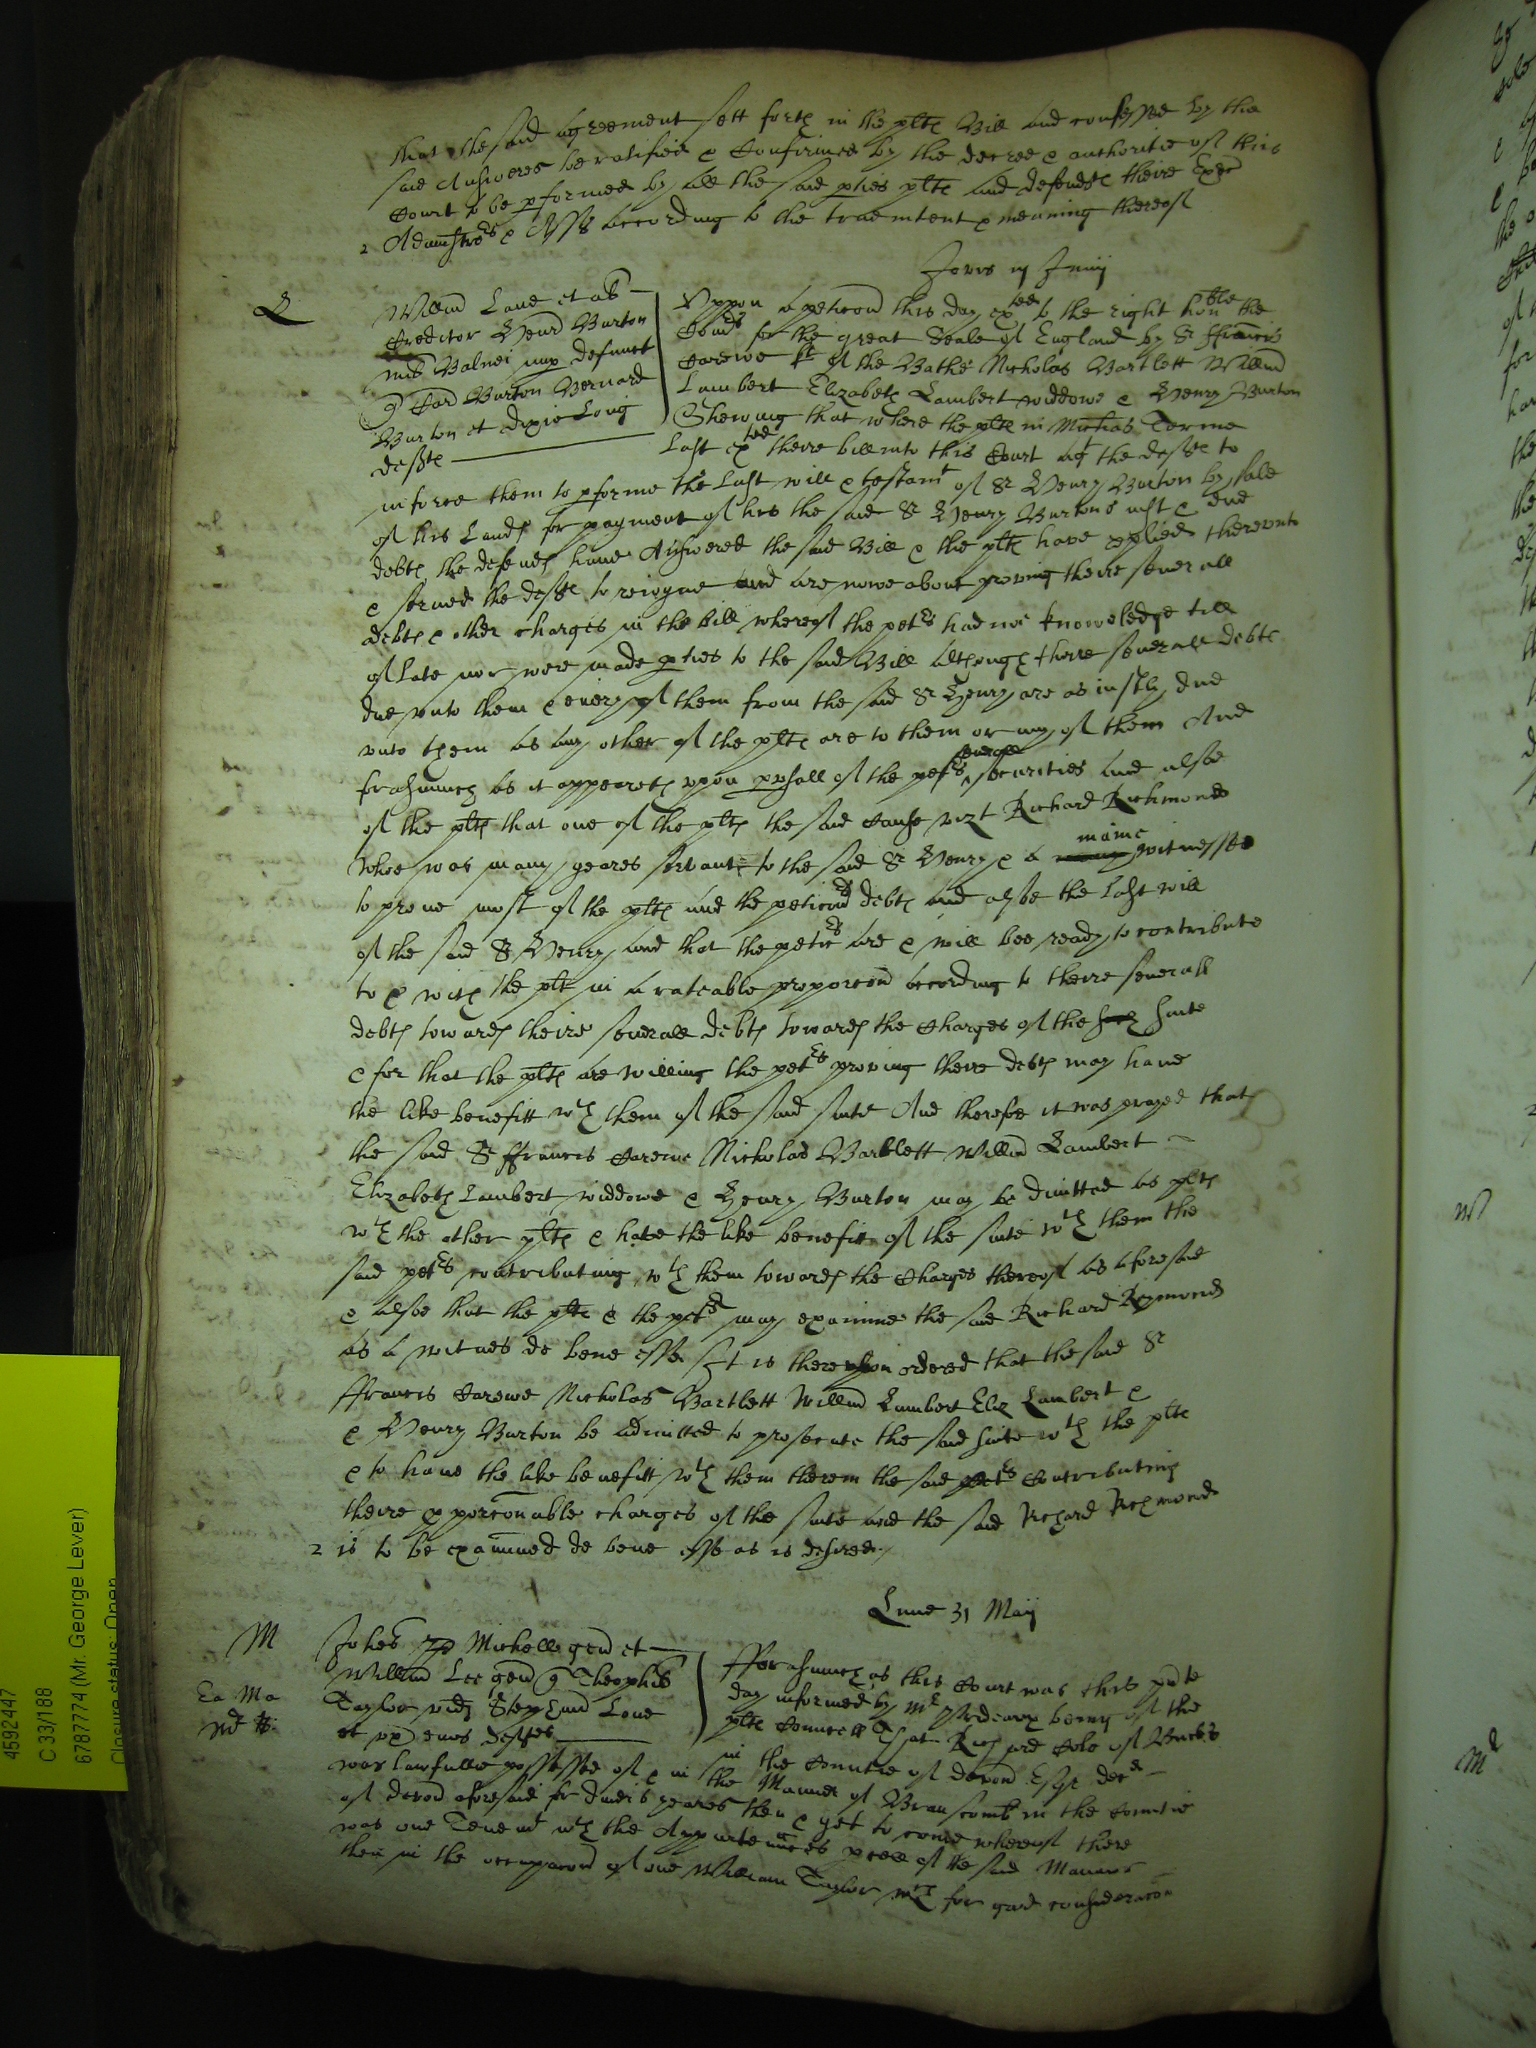 that the said agreement sett forth in the plts Bill and confessed by the
said Answeres be ratified & Confirmed by the decree & authoritie of this
Court to be pformed by all the said pties plts and defendts theire Exec
2 Admstrs & Ass according to the true intent & meaning thereof
Jovis Junij
L Willm Lane et al
Creditor Henr Burton
mil Balnei nup defunct
Card Burton Bernard
Burton et Long
defts
Uppon a peticon this day exted to the right honble the
Comrs for the great Seale of England by Sr ffrancis
Carewe kt of the Bathe Nicholas Bartlett Willm
Lambert Elizabeth Lambert widdowe & Henry Burton
Shewing that where the plts in Michas Terme
Last exted theire bill into this Court agt the defts to
inforce them to pforme the Last will & testamt of Sr Henry Burton by sale
of his Lands for payment of his the said Sr Henry Burtons iust & due
debts the defends have Answered the said Bill & the plts have replied therevnto
& served the defts to reioyne and are nowe about proving theire severall
debts & other charges in the bill whereof the petrs had noe knowledge till
of Late nor were made pties to the said Bill although theire severall debts
due vnto them & every of them from the said Sr Henry are as iustly due
vnto them as any other of the plts are to them or any of them And
forasmuch as it appeareth vpon pusall of the petrs severall securities and alsoe
of the plts that one of the plts the said Cause vizt Richard Richmond
whoe was many yeares servant to the said Sr Henry & a many maine witnesse
to prove most of the plts and the peticonrs debts and alsoe the Last will
of the said Sr Henry and that the peticrs are & will bee ready to contribute
to & with the plts in a rateable proporcon according to theire severall
debts towards theire severall debts towards the Charges of the such suite
& for that the plts are willing the petrs proving there debts may have
the like benefitt wth them of the said suite And therefore it was prayed that
the said Sr ffrancis Carewe Nicholas Bartlett Willm Lambert
Elizabeth Lambert widdowe & Henry Burton may be admitted as plts
wth the other plts & have the like benefit of the suite wth them the
said petrs contributing wth them towards the Charges thereof as aforesaid
& alsoe that the plts & the petrs may examine the said Richard Rymond
as a witnes de bene esse It is thereupon ordered that the said Sr
ffrancis Carewe Nicholas Bartlett Willm Lambert Eliz Lambert &
& Henry Burton be admitted to prosecute the said suite wth the plts
& to have the like benefitt wth them therein the said petrs Contributing
theire pporconable charges of the suite and the said Richard Richmond
2 is to be examined de bene esse as is desired
Lune 31 Maij
M Johes Michell gen et
Willm Lee gen Theophis
Taylor vid Stephm Lone
et ux eius deftes
Ea Ma
fforasmuch as this Court was this pnte
day informed by Mr being of the
plts Councell That Richard Cole of Bucks
in the Countie of Devon Esqr decd
was lawfullie possessed of & in the Mannor of Branscomb in the Countie
of Devon aforesaid for divers yeares then & yet to come whereof there
was one Tenemt wth the Appurtenncs pcell of the said Mannor
then in the occupacon of one William Taylor wch for good consideracon
4592447
C 33/188
6787774 (Mr. George Lever)
Closure status: Open